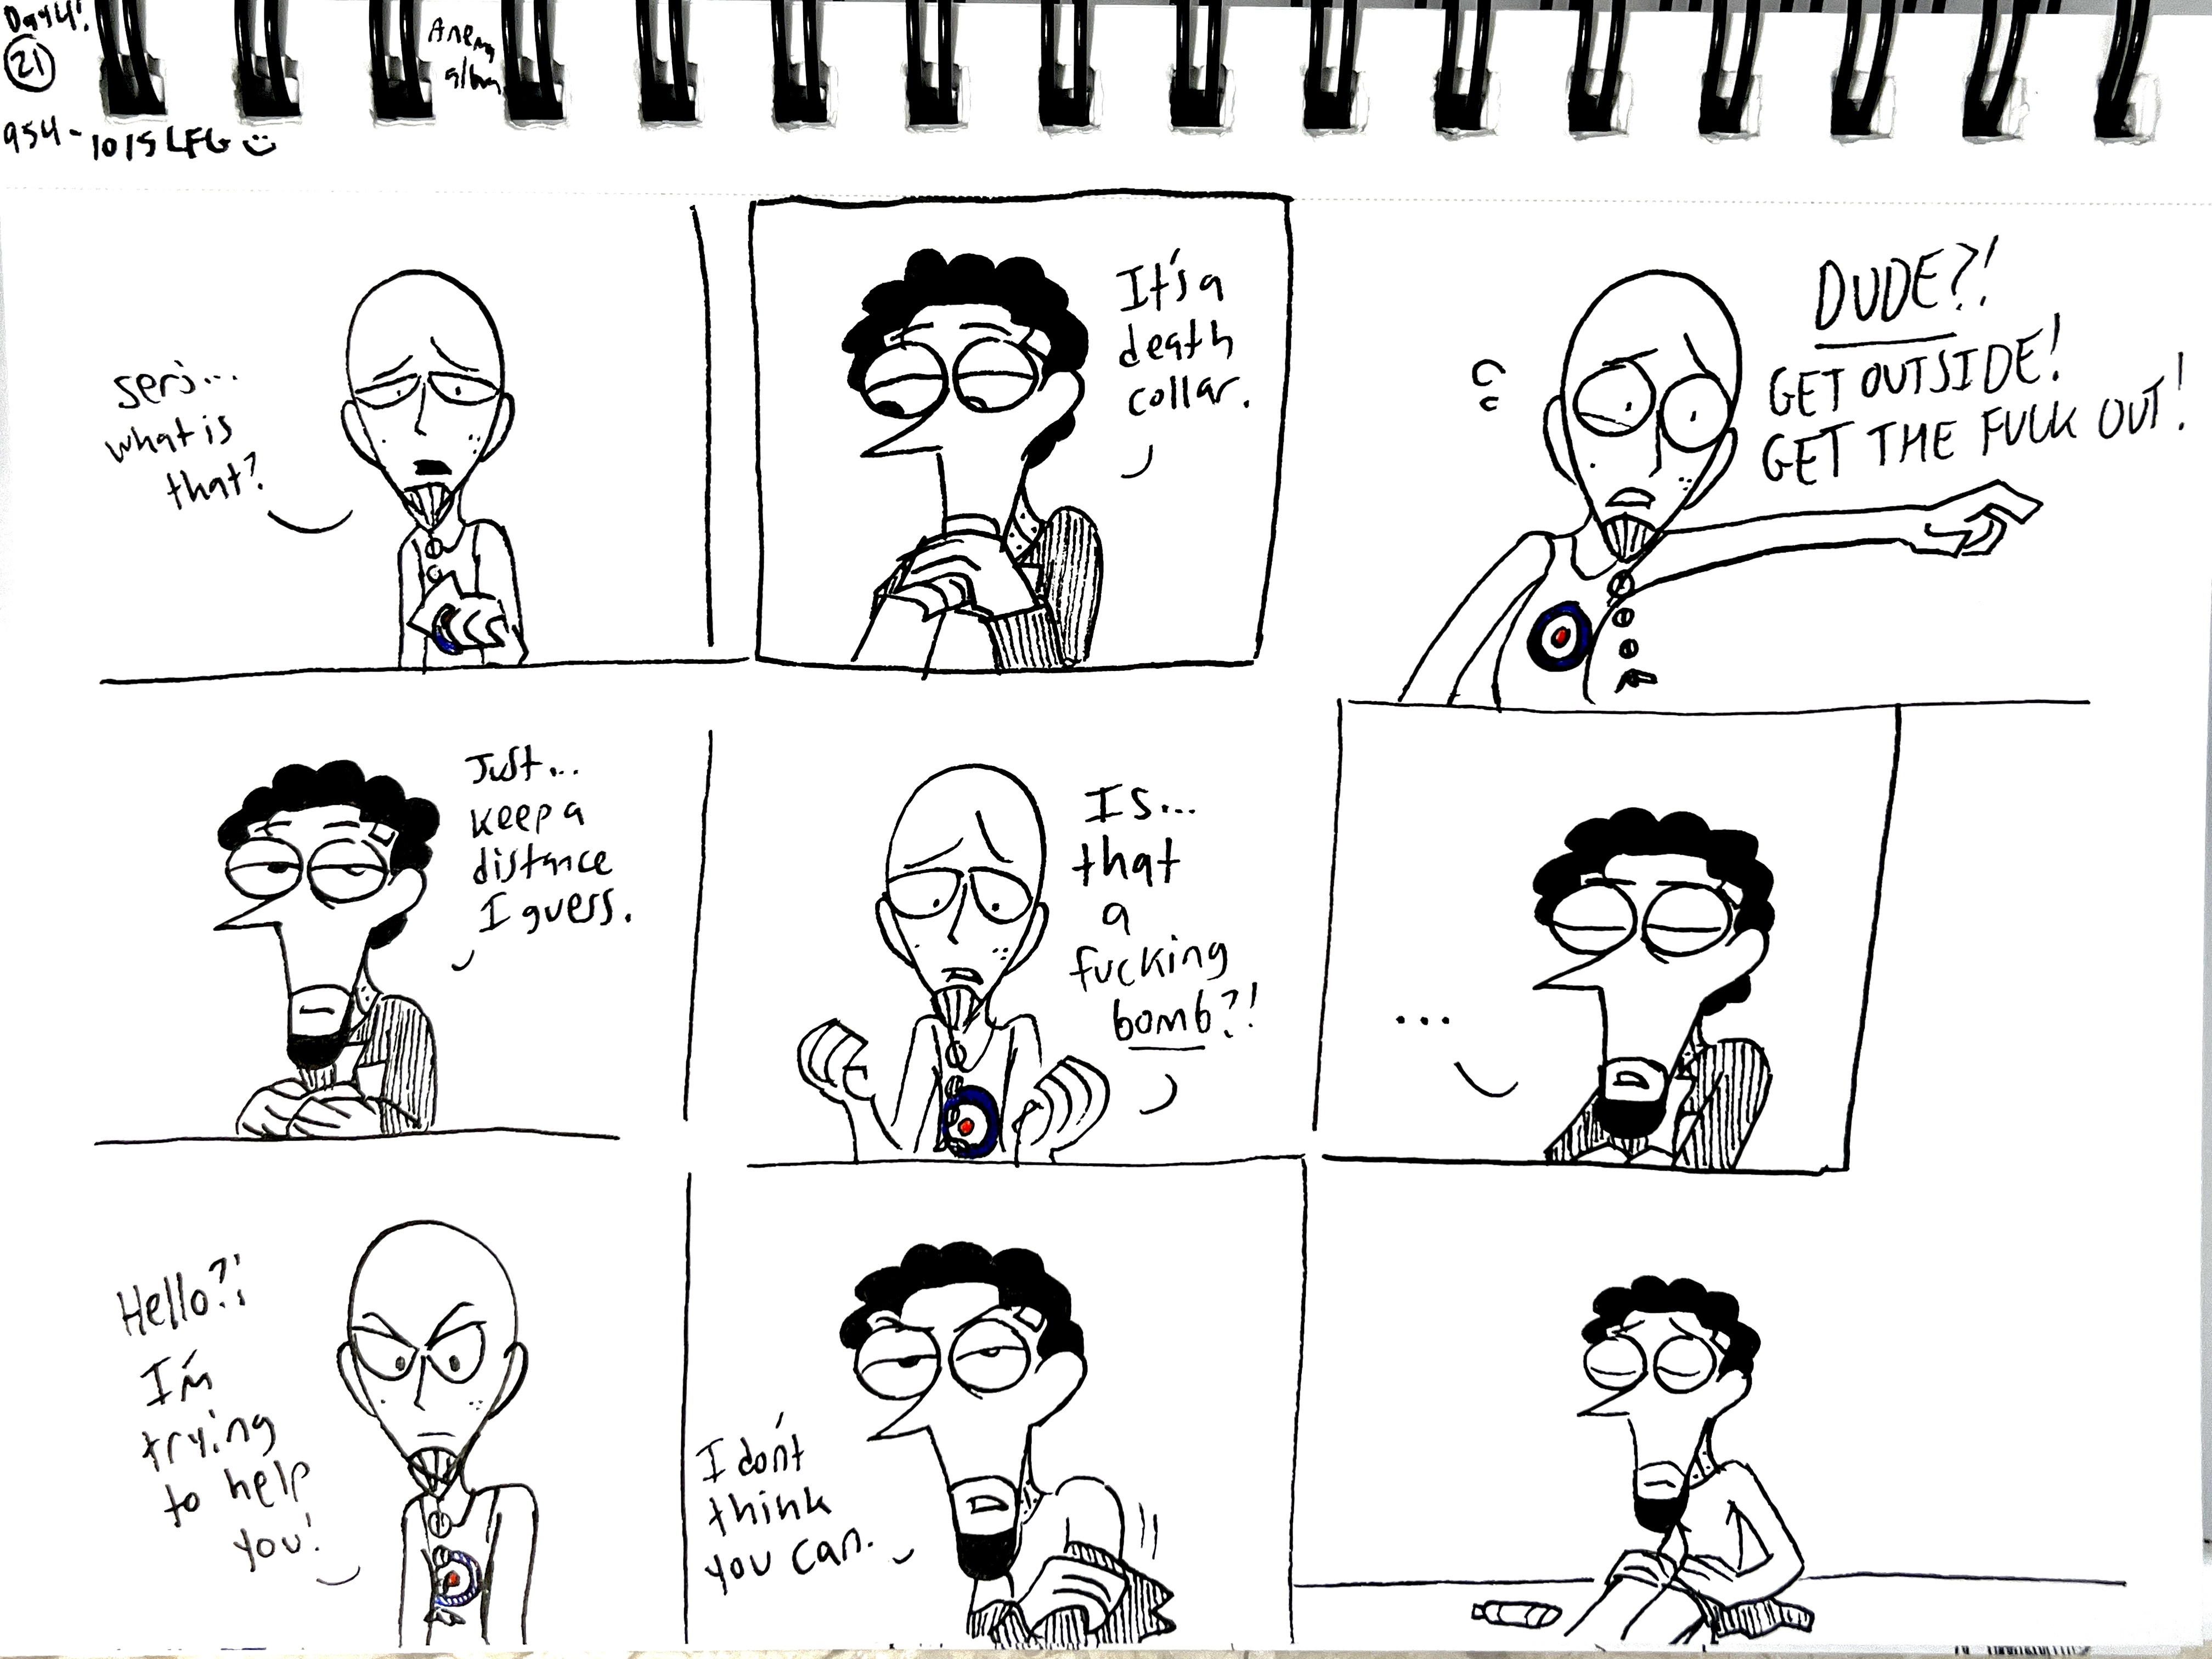 Day 4!
21
954-1015 LFG :)
album
seri...
what is
that?
It's a
death
collar.
DUDE?!
GET OUTSIDE!
GET THE FUCK OUT!
Just...
keep a
distance
I guess.
Is...
that
a
fucking
bomb?!
...
Hello?!
I'm
trying
to help
you!
I don't
think
you can.